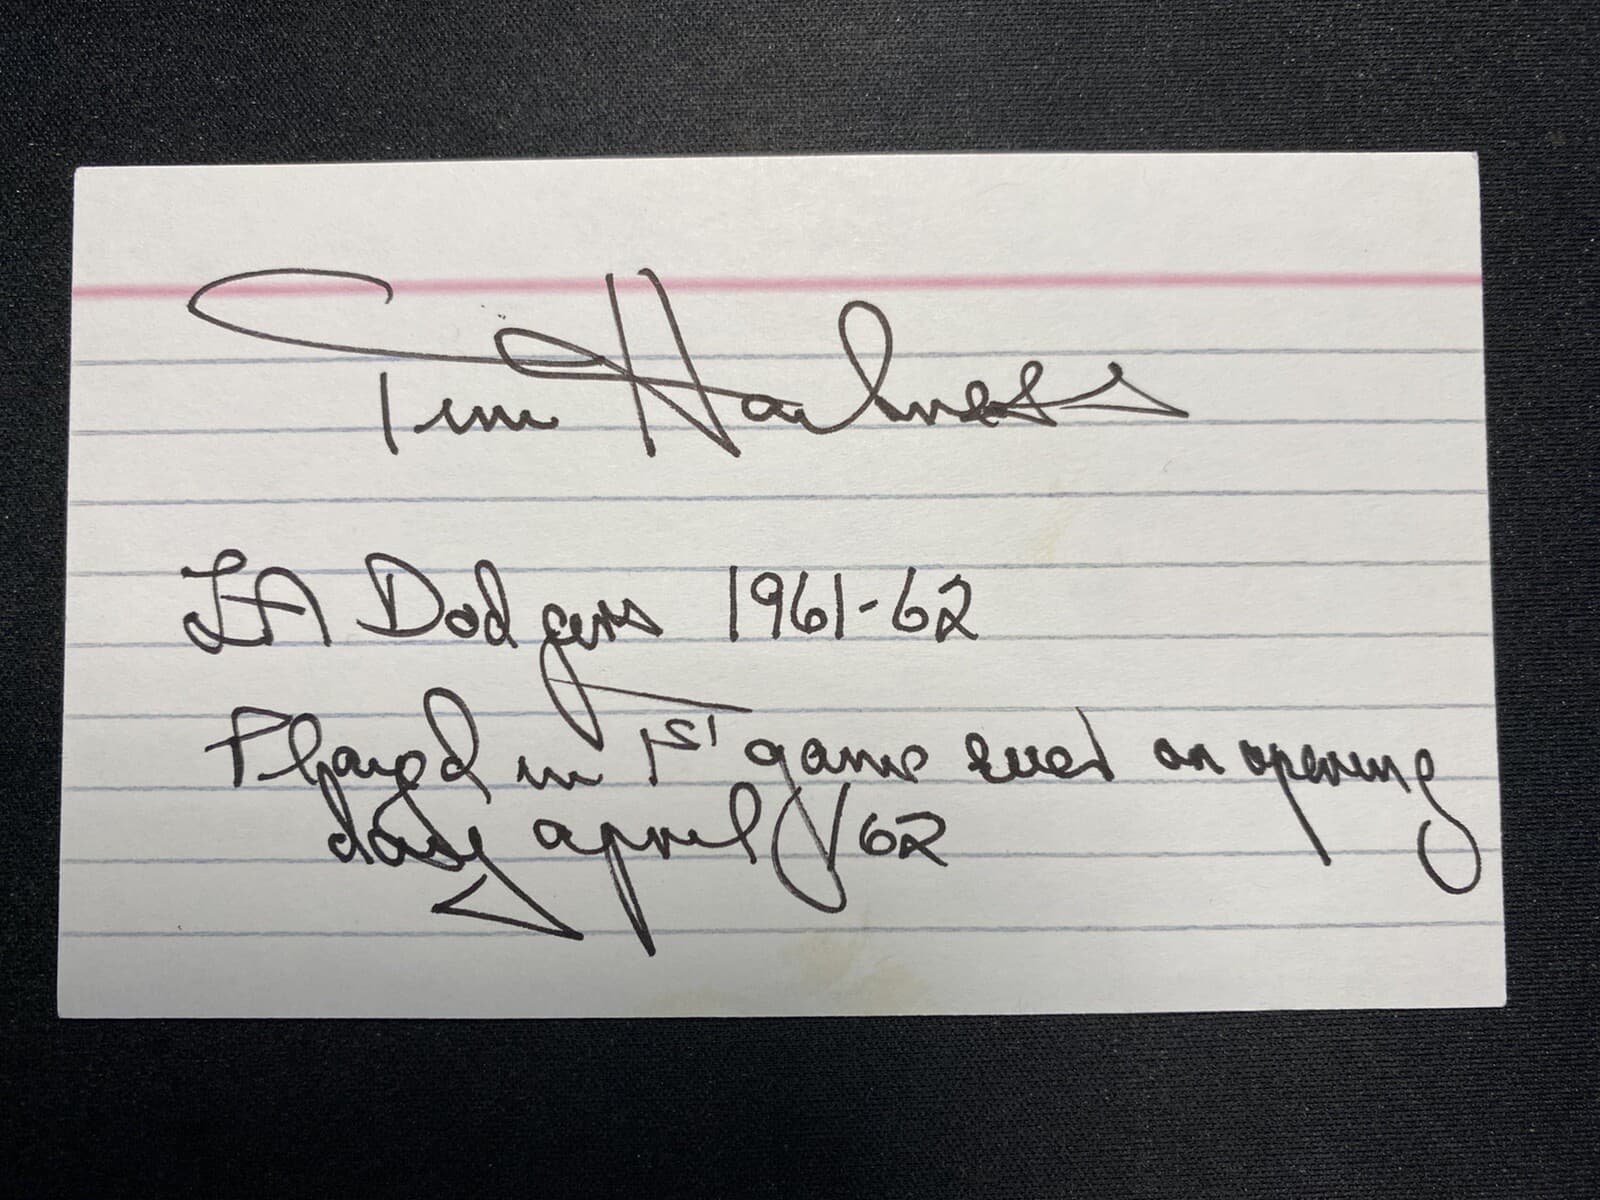 Tim Harkness
LA Dodgers 1961-62
Played in 1st game ever on opening
day april / 62